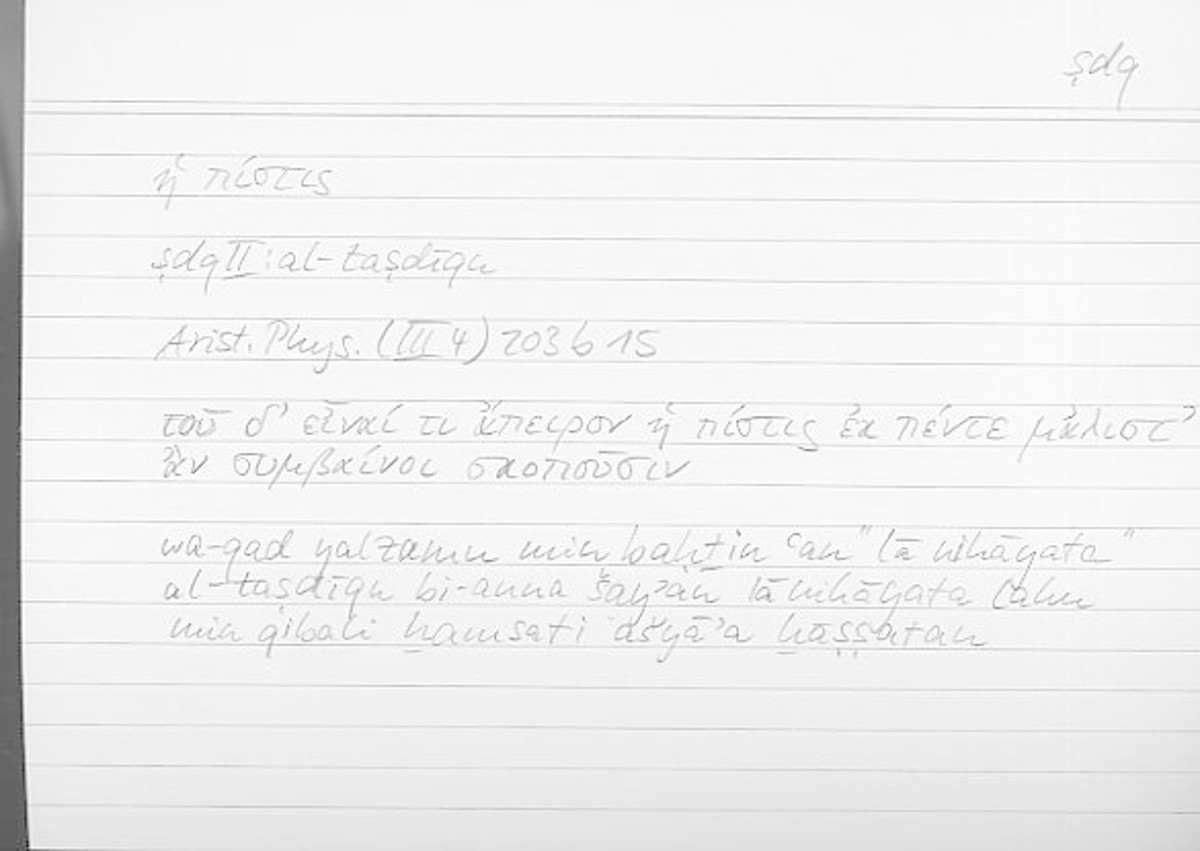 ṣdq
ἡ πίστις
ṣdq II: al-taṣdīqu
Arist. Phys. (III 4) 203 b 15
τοῦ δ' εἶναί τι ἄπειρον ἡ πίστις ἐκ πέντε μάλιστ'
ἂν συμβαίνοι σκοποῦσιν
wa-qad yalzamu min baḥṯin ʿan "lā nihāyata"
al-taṣdīqu bi-anna šayʾan lā nihāyata lahu
min qibali ḫamsati ašyāʾa ḫāṣṣatan